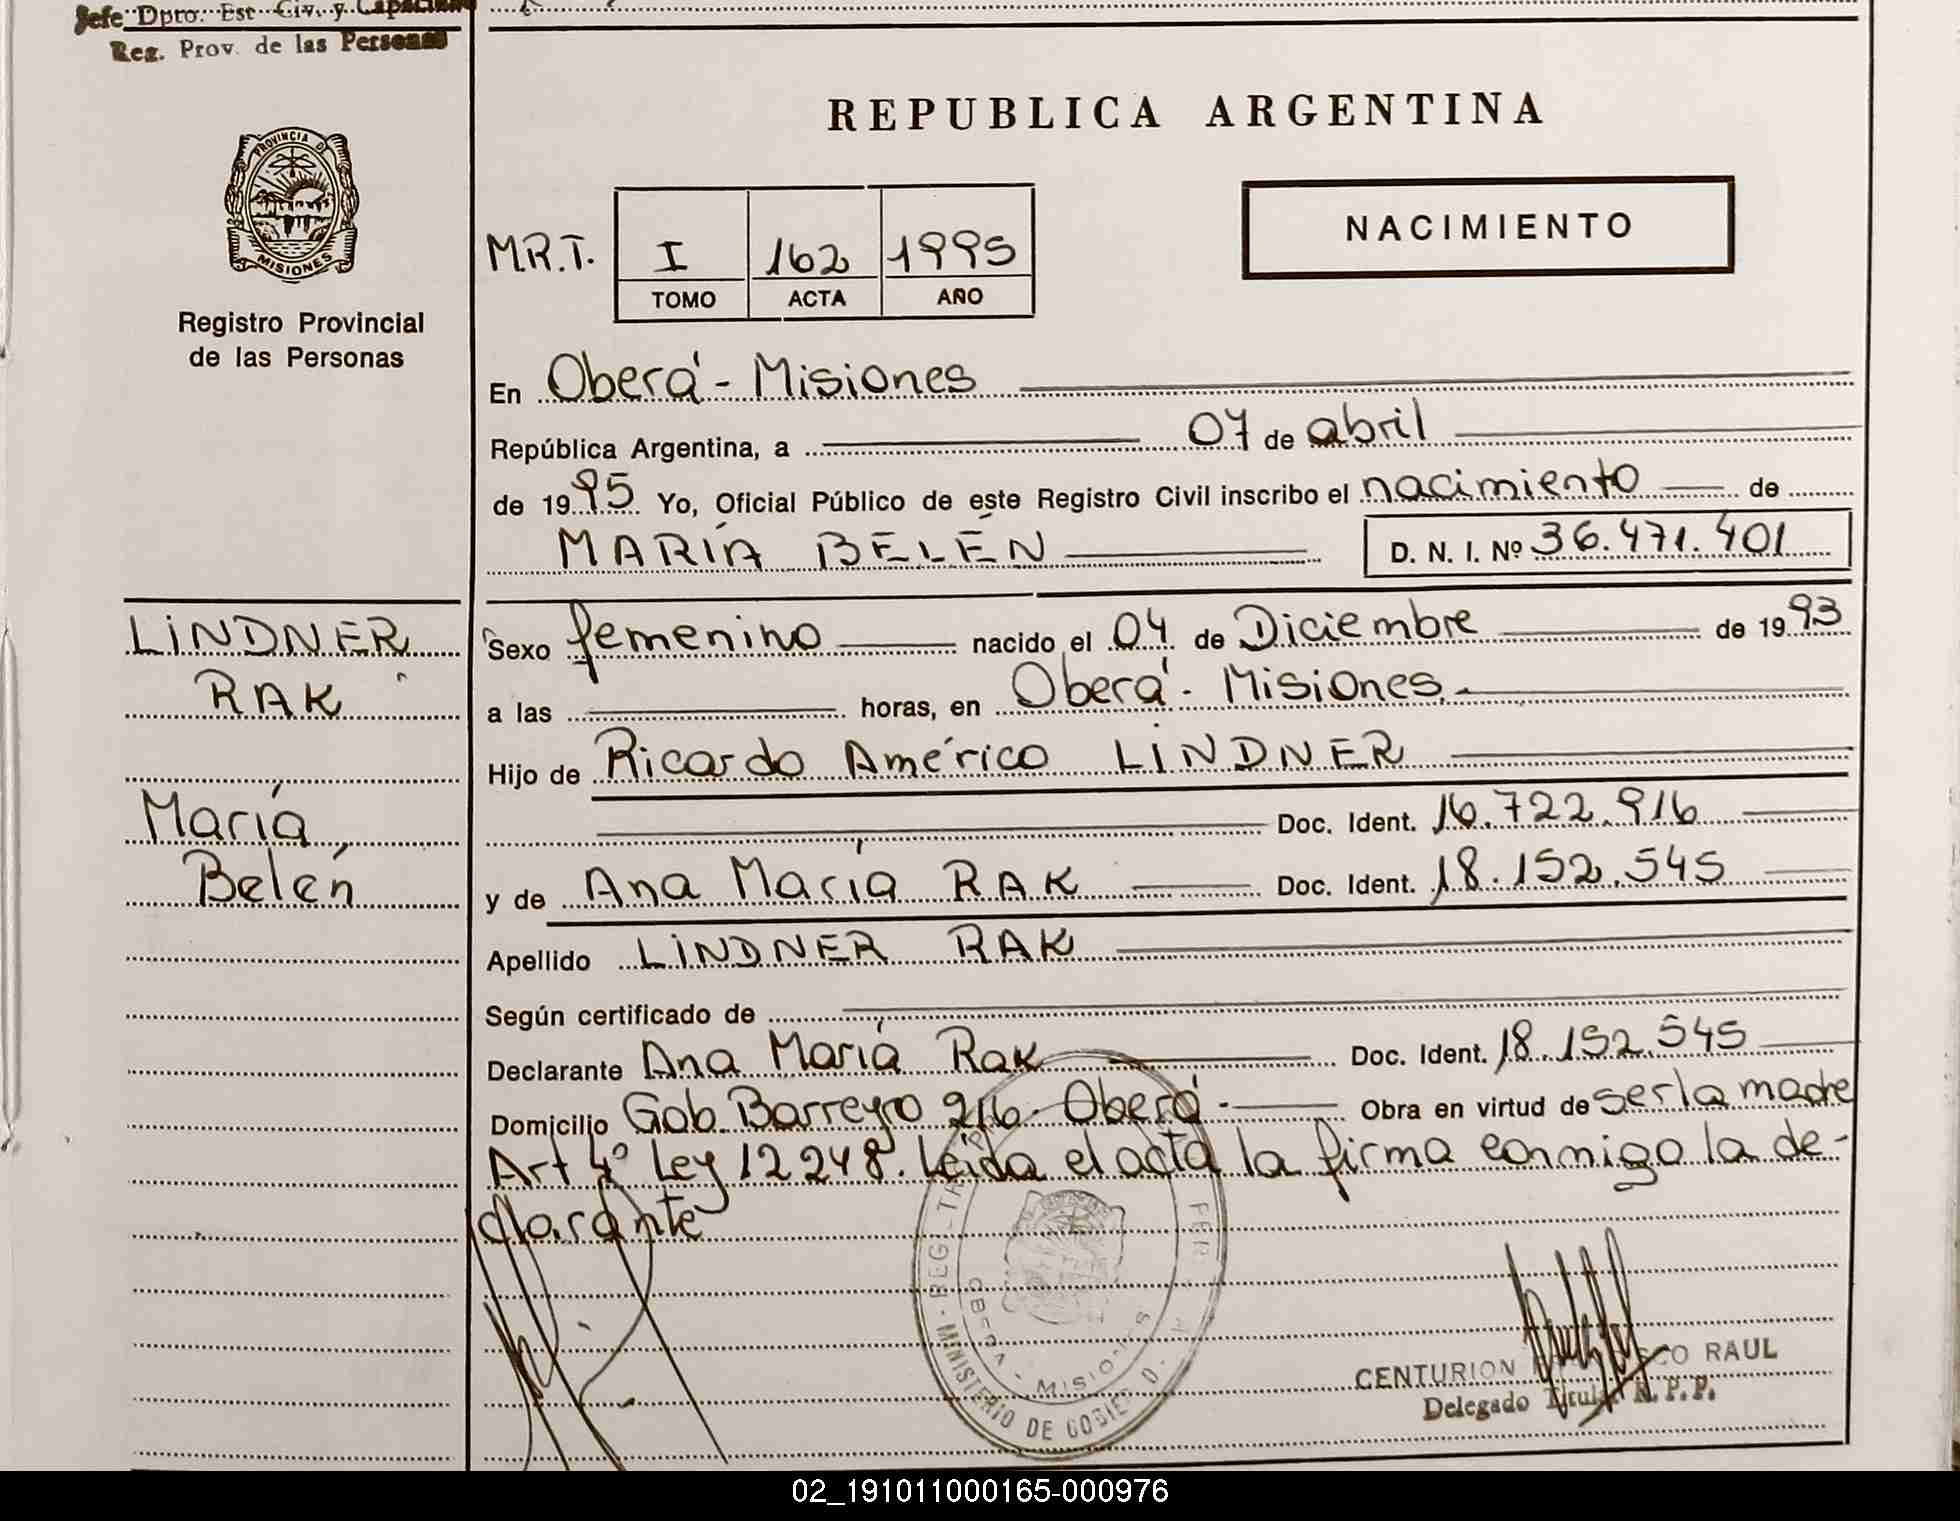 Jefe Dpto. Est Civ. y
Reg. Prov. de las Personas
PROVINCIA D
MISIONES
Registro Provincial
de las Personas
REPUBLICA ARGENTINA
NACIMIENTO
M.R.T. I 162 1995
TOMO ACTA AÑO
En Oberá - Misiones
República Argentina, a 07 de abril
de 1995 Yo, Oficial Público de este Registro Civil inscribo el nacimiento de
MARÍA BELÉN D. N. I. Nº 36.471.401
LINDNER
RAK
María
Belén
Sexo femenino nacido el 04 de Diciembre de 1993
a las horas, en Oberá - Misiones.
Hijo de Ricardo Américo LINDNER
Doc. Ident. 16.722.916
y de Ana María RAK Doc. Ident. 18.152.545
Apellido LINDNER RAK
Según certificado de
Declarante Ana María Rak Doc. Ident. 18.152.545
Domicilio Gob. Barreyro 216. Oberá - Obra en virtud de ser la madre
Art 4º Ley 12248. Leída el acta la firma conmigo la de-
clarante
MINISTERIO DE
MISIONES
CENTURION RAUL
Delegado Titular R. P. P.
02_191011000165-000976